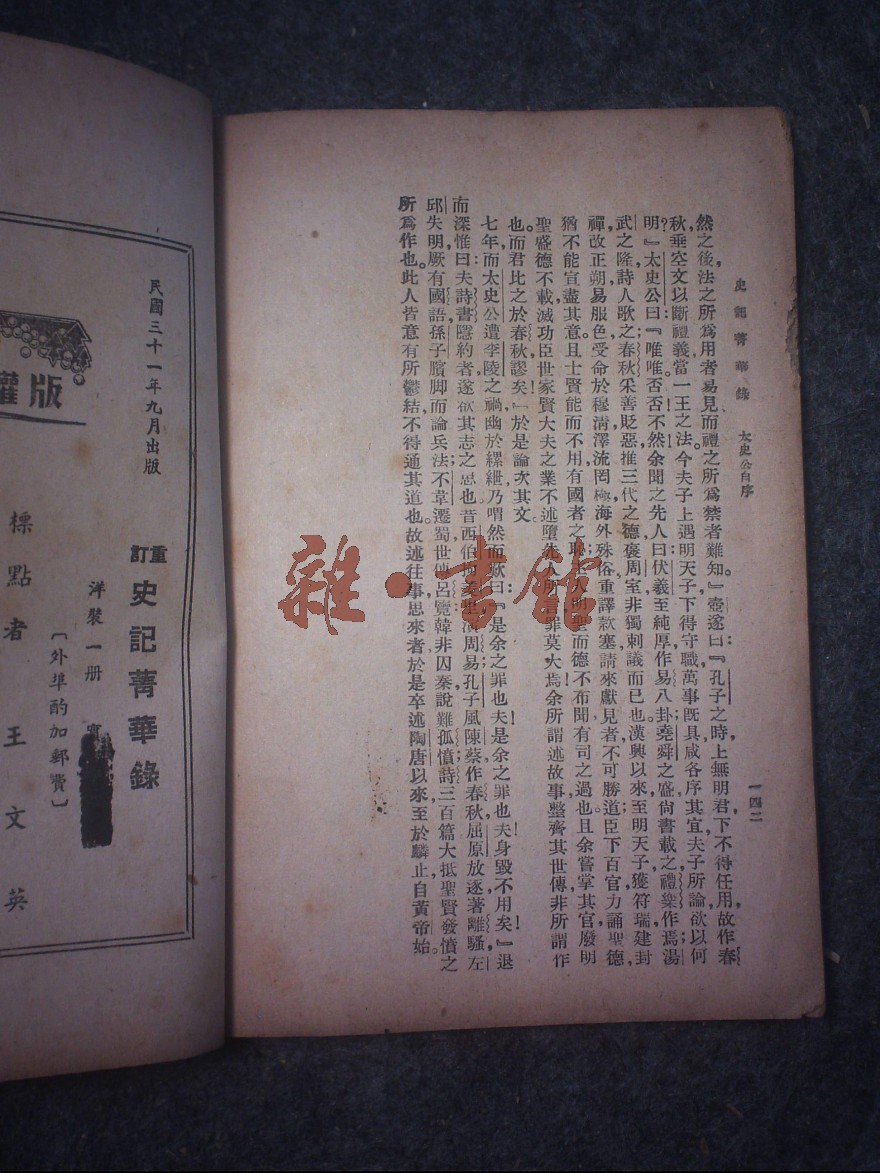 史記菁華錄　太史公自序
一四二
然之後，法之所爲用者易見，而禮之所爲禁者難知』。壺遂曰：『孔子之時，上無明君，下不得任用，故作春
秋，垂空文以斷禮義，當一王之法。今夫子上遇明天子，下得守職，萬事既具，咸各序其宜，夫子所論，欲以何
明？』太史公曰：『唯唯。否否！不然。余聞之先人曰：伏羲至純厚，作易八卦；堯舜之盛，尙書載之，禮樂作焉；湯
武之隆，詩人歌之；春秋采善貶惡，推三代之德，褒周室，非獨刺議而已也。漢興以來，至明天子，獲符瑞，建封
禪，改正朔，易服色，受命於穆清，澤流罔極，海外殊俗，重譯款塞，請來獻見者，不可勝道；臣下百官，力誦聖德，
猶不能宣盡其意。且士賢能而不用，有國者之恥；主上明聖而德不布聞，有司之過也。且余嘗掌其官，廢明
聖盛德不載，滅功臣世家賢大夫之業不述，墮先人所言，罪莫大焉！余所謂述故事，整齊其世傳，非所謂作
也。而君比之於春秋，謬矣！』於是論次其文。
七年，而太史公遭李陵之禍，幽於縲紲，乃喟然而歎曰：『是余之罪也夫！是余之罪也夫！身毀不用矣！』退
而深惟曰：夫詩書隱約者，遂欲其志之思也。昔西伯拘羑里，演周易；孔子厄陳蔡，作春秋；屈原放逐，著離騷；左
邱失明，厥有國語；孫子臏脚，而論兵法；不韋遷蜀，世傳呂覽；韓非囚秦，說難孤憤；詩三百篇，大抵聖賢發憤之
所爲作也。此人皆意有所鬱結，不得通其道也。故述往事，思來者。於是卒述陶唐以來，至於麟止，自黃帝始。
版權
民國三十一年九月出版
重訂 史記菁華錄
洋裝一册 實
〔外埠酌加郵費〕
標點者 王文英
雜·書館